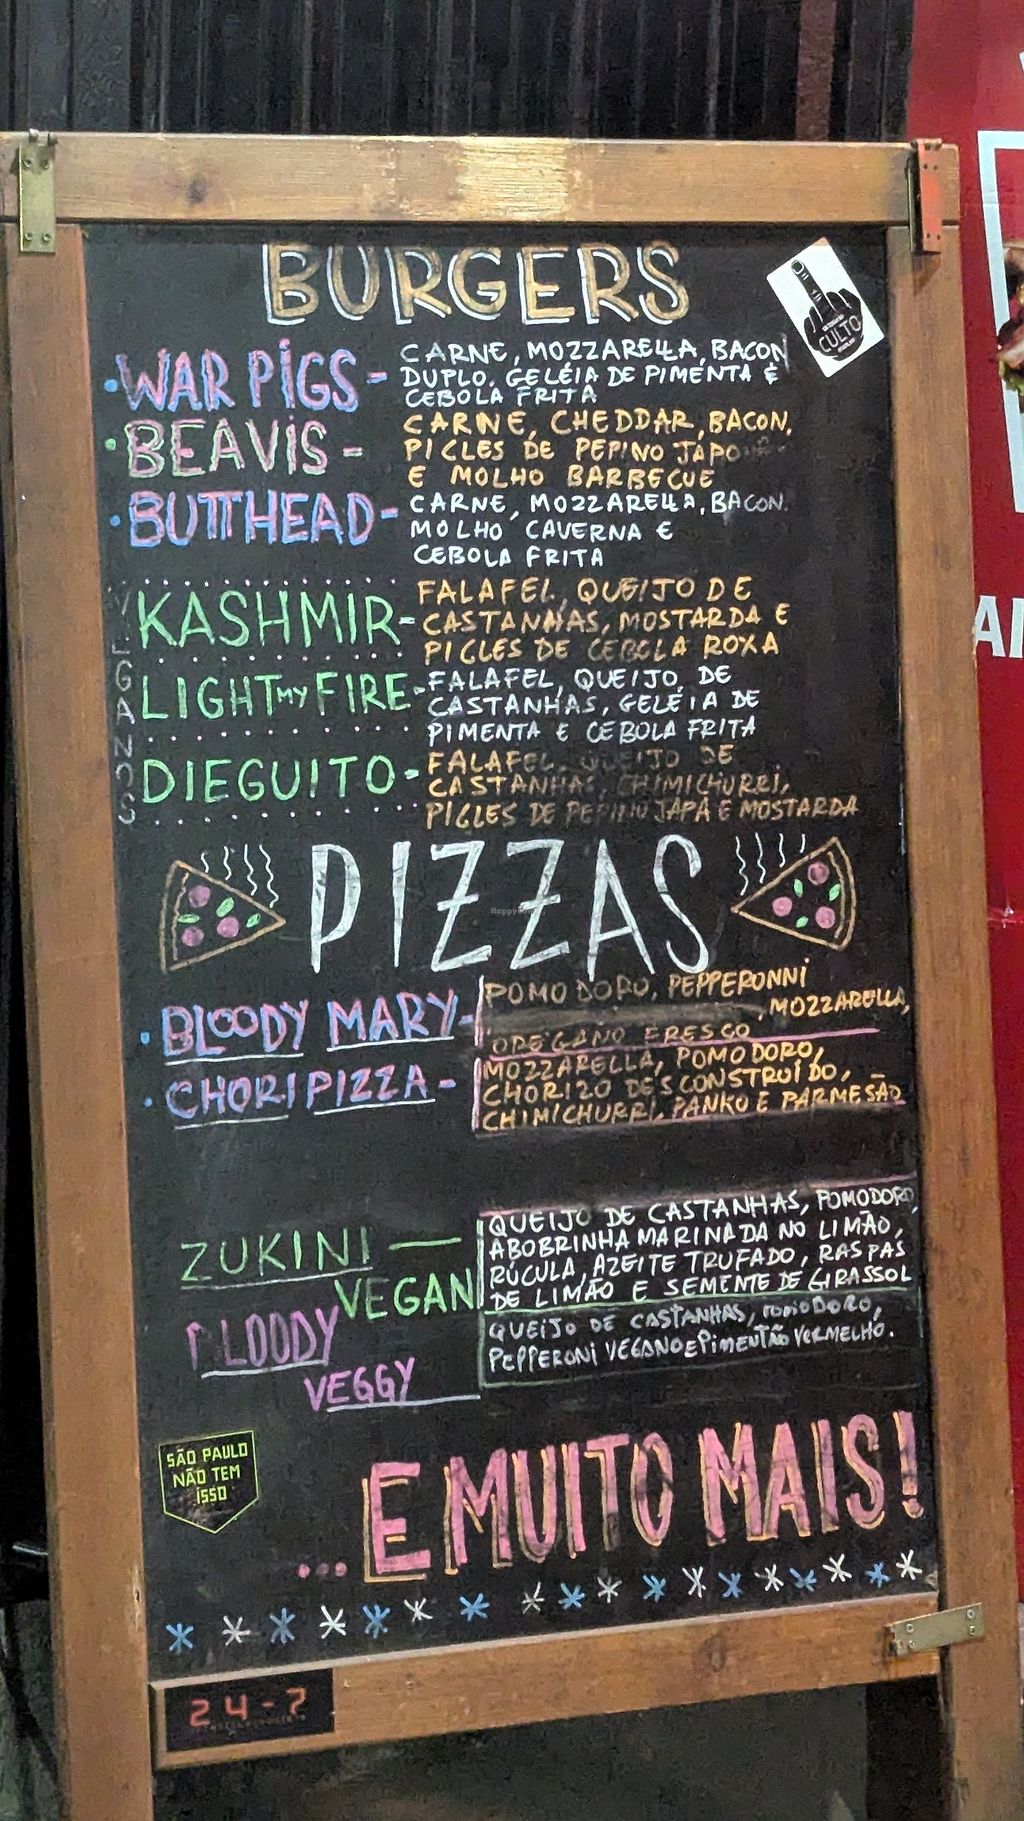 BURGERS
CULTO
·WAR PIGS - CARNE, MOZZARELLA, BACON
DUPLO, GELÉIA DE PIMENTA E
CEBOLA FRITA
·BEAVIS - CARNE, CHEDDAR, BACON,
PICLES DE PEPINO JAPO
E MOLHO BARBECUE
·BUTTHEAD - CARNE, MOZZARELLA, BACON.
MOLHO CAVERNA E
CEBOLA FRITA
VEGANOS
KASHMIR - FALAFEL, QUEIJO DE
CASTANHAS, MOSTARDA E
PICLES DE CEBOLA ROXA
LIGHT MY FIRE - FALAFEL, QUEIJO DE
CASTANHAS, GELÉIA DE
PIMENTA E CEBOLA FRITA
DIEGUITO - FALAFEL, QUEIJO DE
CASTANHAS, CHIMICHURRI,
PICLES DE PEPINO JAPA E MOSTARDA
PIZZAS
· BLOODY MARY - POMODORO, PEPPERONNI
, MOZZARELLA,
OREGANO FRESCO
· CHORIPIZZA - MOZZARELLA, POMODORO,
CHORIZO DESCONSTRUÍDO,
CHIMICHURRI, PANKO E PARMESÃO
ZUKINI — VEGAN
QUEIJO DE CASTANHAS, POMODORO,
ABOBRINHA MARINADA NO LIMÃO,
RÚCULA, AZEITE TRUFADO, RASPAS
DE LIMÃO E SEMENTE DE GIRASSOL
BLOODY VEGGY
QUEIJO DE CASTANHAS, POMODORO,
PEPPERONI VEGANO E PIMENTÃO VERMELHO.
SÃO PAULO
NÃO TEM
ISSO
... E MUITO MAIS!
24-7